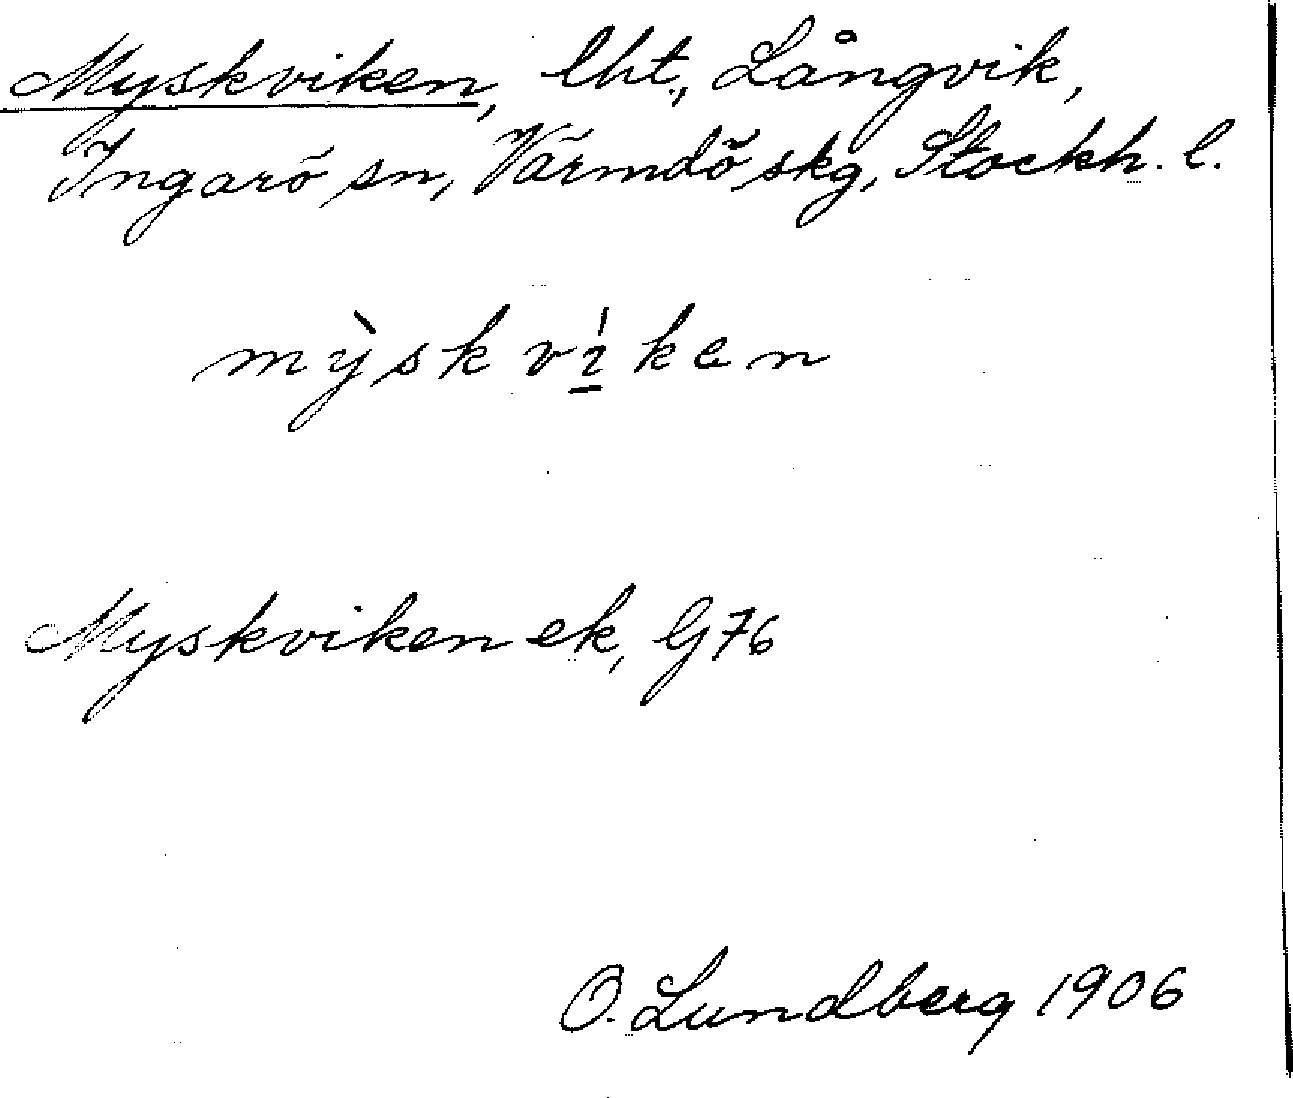 Myskviken, lht., Långvik,
Ingarö sn, Värmdö skg, Stockh. l.
mỳskvı̲́ken
Myskviken ek, G76
O. Lundberg 1906